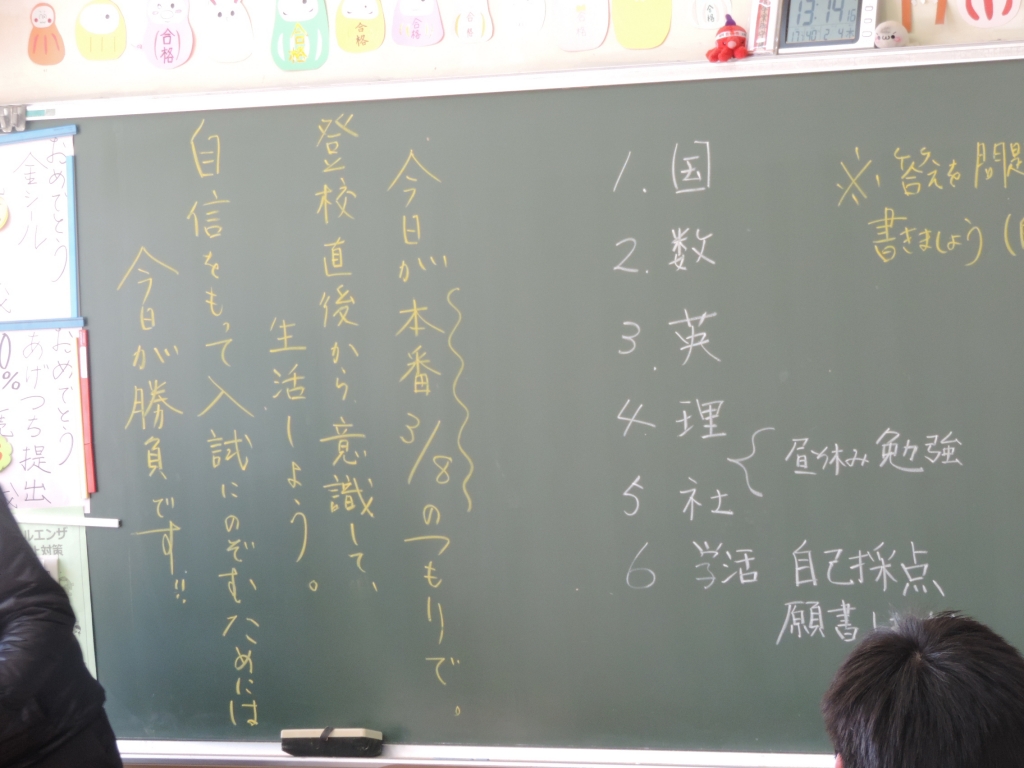 合格
合格
合格
合格
合格
合格
今日が本番3/8のつもりで。
登校直後から意識して、
生活しよう。
自信をもって入試にのぞむためには
今日が勝負です!!
1. 国
2. 数
3. 英
4. 理
5 社
昼休み勉強
6 学活 自己採点
願書
※答えを問題
書きましょう(
おめでとう
金シール
おめでとう
あげつる提出
0%
ルエンザ
対策